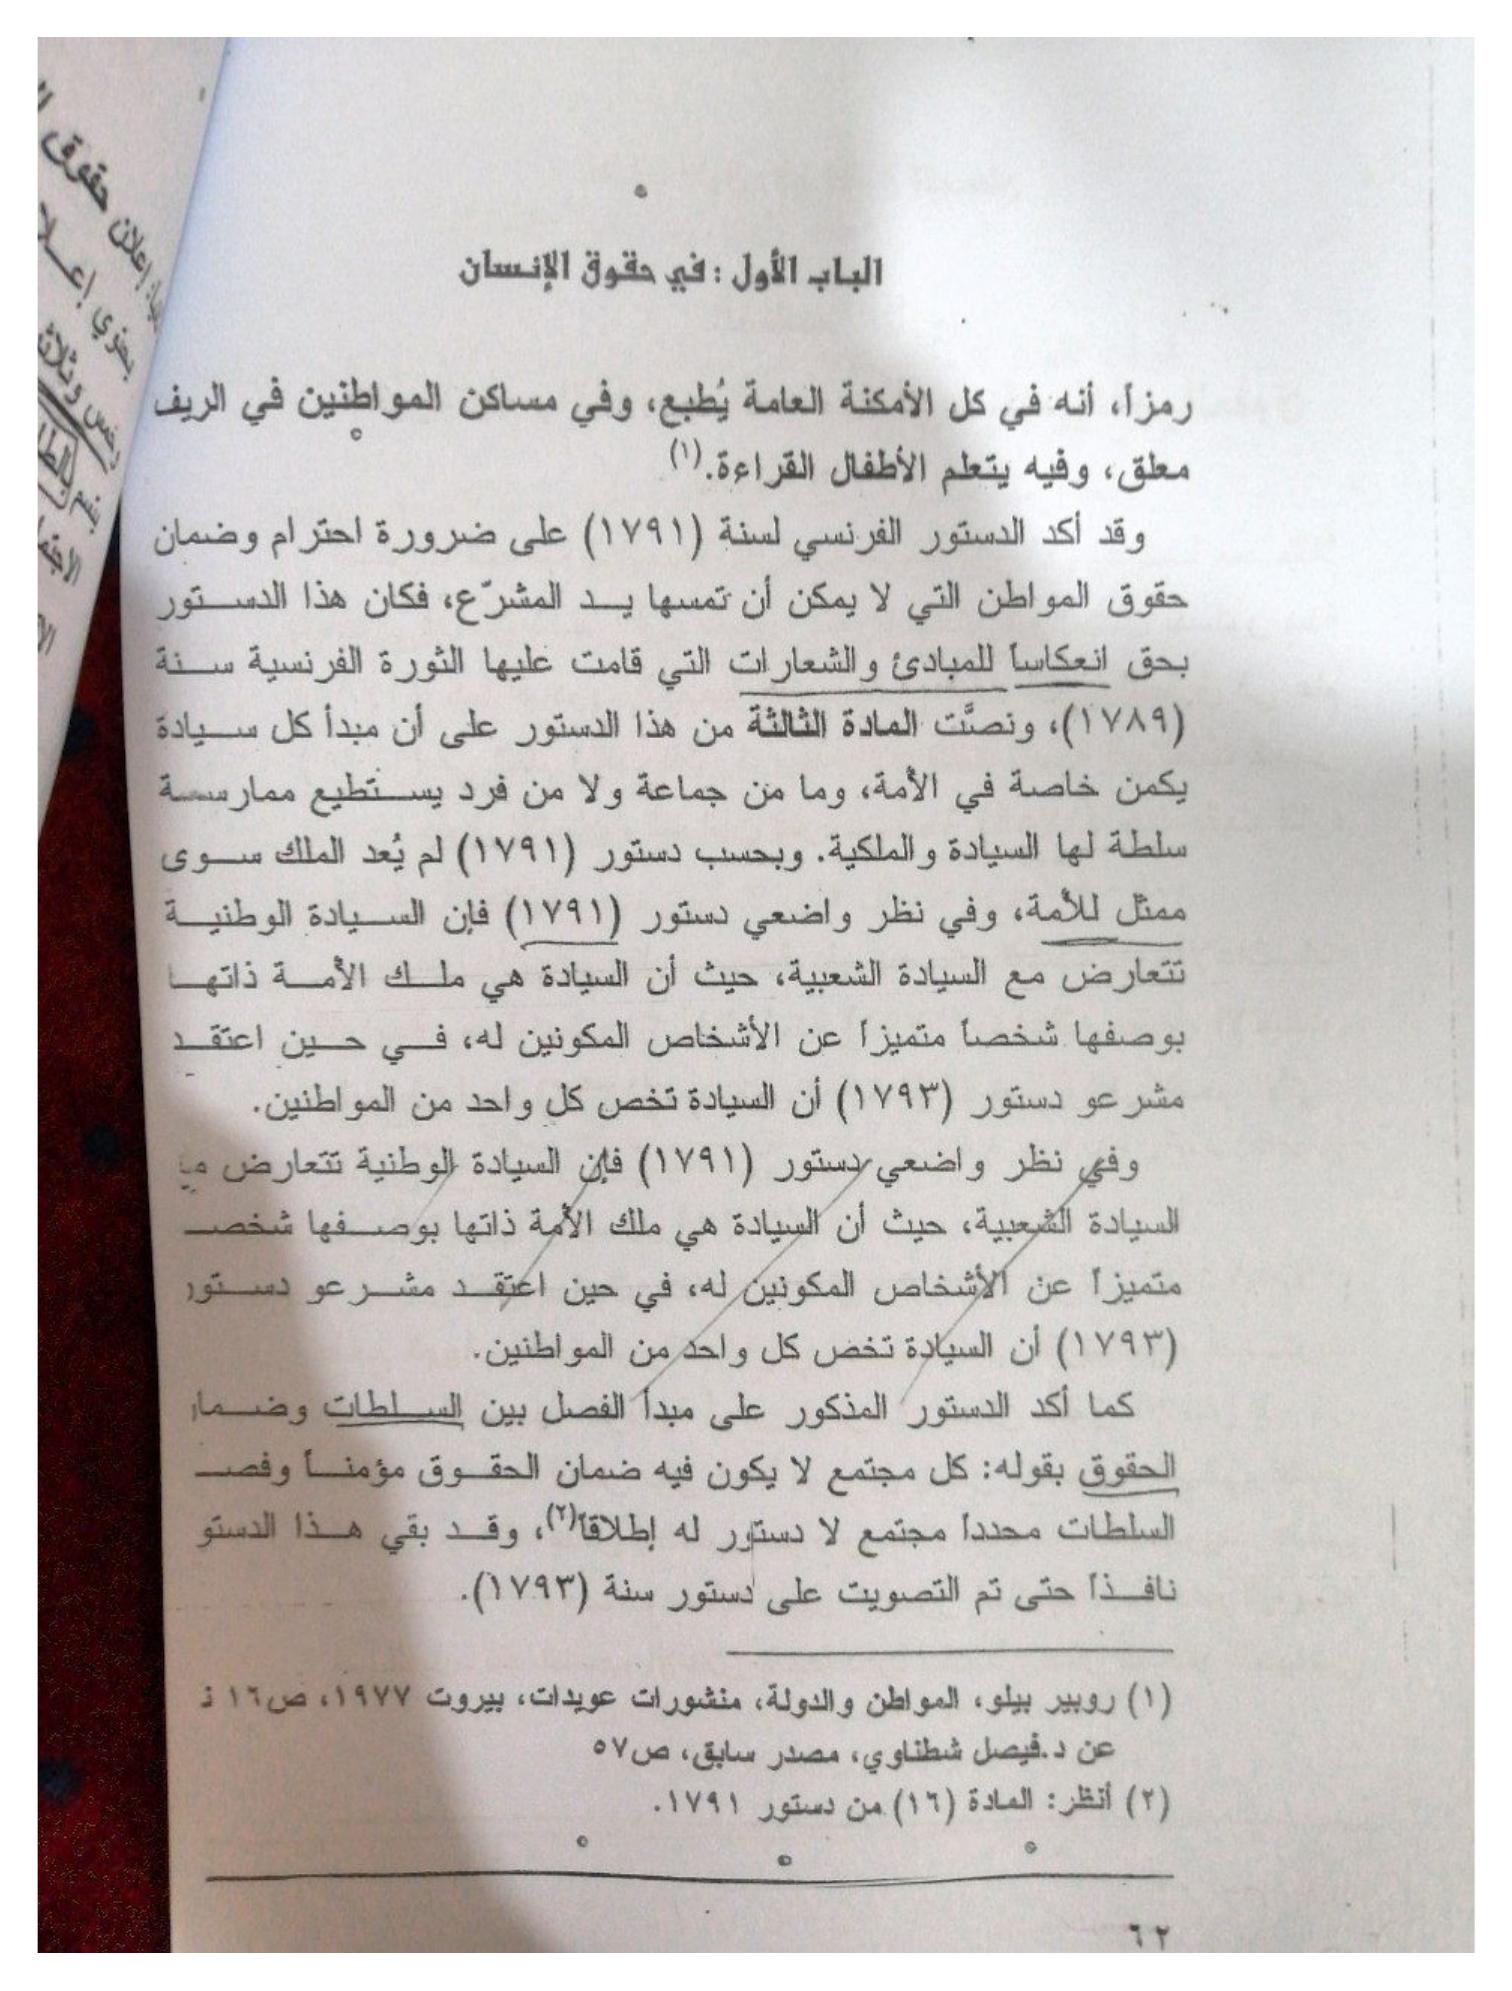 الباب الأول : في حقوق الإنسان
رمزاً، أنه في كل الأمكنة العامة يُطبع، وفي مساكن المواطنين في الريف
معلق، وفيه يتعلم الأطفال القراءة.(١)
وقد أكد الدستور الفرنسي لسنة (١٧٩١) على ضرورة احترام وضمان
حقوق المواطن التي لا يمكن أن تمسها يد المشرّع، فكان هذا الدستور
بحق انعكاساً للمبادئ والشعارات التي قامت عليها الثورة الفرنسية سنة
(١٧٨٩)، ونصَّت المادة الثالثة من هذا الدستور على أن مبدأ كل سيادة
يكمن خاصة في الأمة، وما من جماعة ولا من فرد يستطيع ممارسة
سلطة لها السيادة والملكية. وبحسب دستور (١٧٩١) لم يُعد الملك سوى
ممثل للأمة، وفي نظر واضعي دستور (١٧٩١) فإن السيادة الوطنية
تتعارض مع السيادة الشعبية، حيث أن السيادة هي ملك الأمة ذاتها
بوصفها شخصاً متميزاً عن الأشخاص المكونين له، في حين اعتقد
مشرعو دستور (١٧٩٣) أن السيادة تخص كل واحد من المواطنين.
وفي نظر واضعي دستور (١٧٩١) فإن السيادة الوطنية تتعارض
السيادة الشعبية، حيث أن السيادة هي ملك الأمة ذاتها بوصفها
متميزاً عن الأشخاص المكونين له، في حين اعتقد مشرعو دستور
(١٧٩٣) أن السيادة تخص كل واحد من المواطنين.
كما أكد الدستور المذكور على مبدأ الفصل بين السلطات
الحقوق بقوله: كل مجتمع لا يكون فيه ضمان الحقوق مؤمناً
السلطات محدداً مجتمع لا دستور له إطلاقاً(٢)، وقد بقي هذا
نافذاً حتى تم التصويت على دستور سنة (١٧٩٣).
(١) روبير بيلو، المواطن والدولة، منشورات عويدات، بيروت ١٩٧٧، ص١٦
عن د.فيصل شطناوي، مصدر سابق، ص٥٧
(٢) أنظر: المادة (١٦) من دستور ١٧٩١.
٦٢